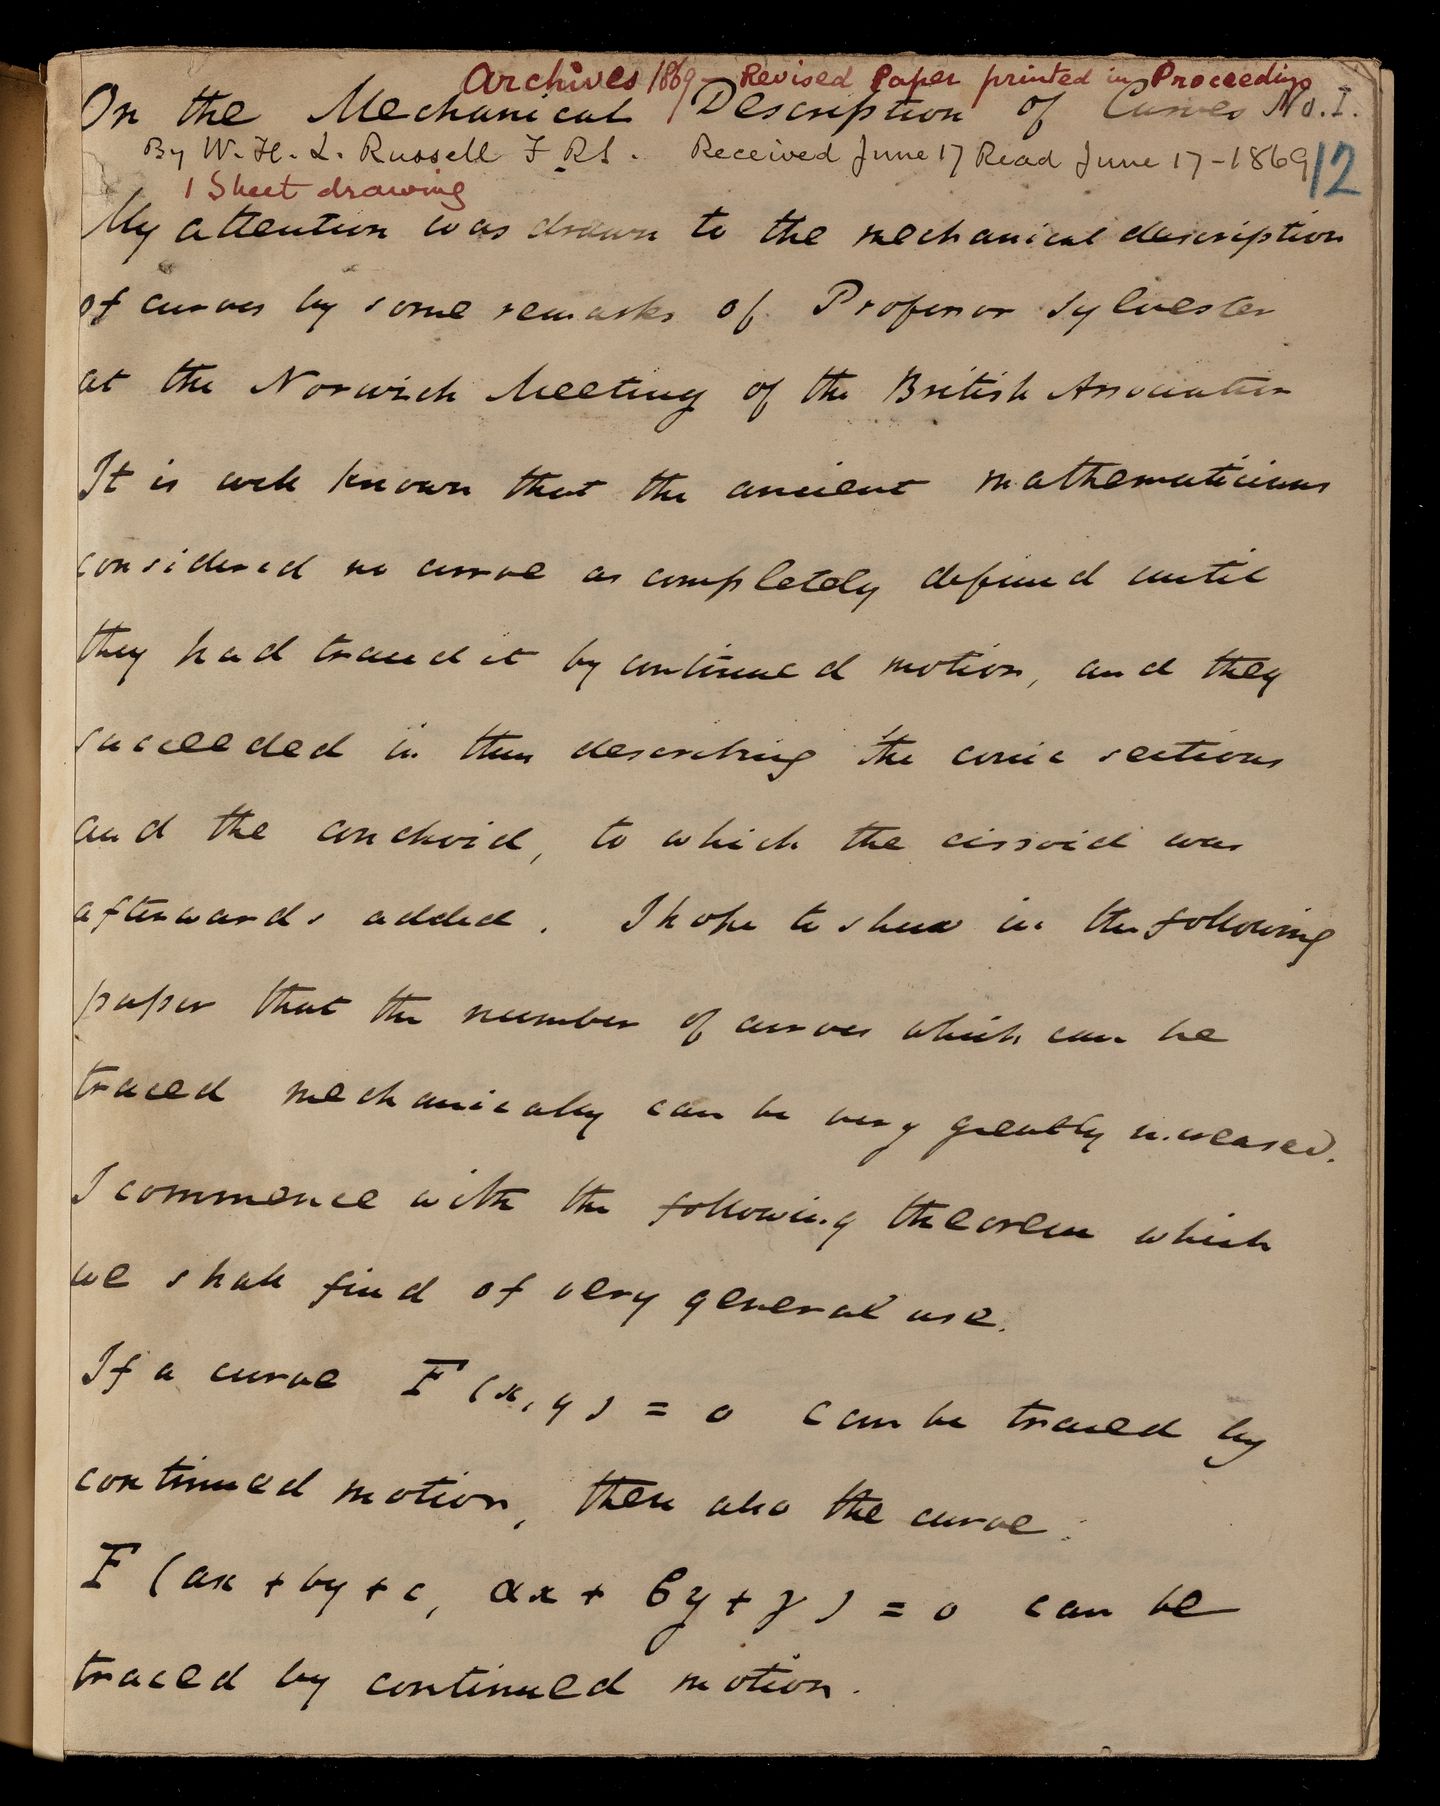 Archives 1869 - Revised Paper printed in Proceedings
On the Mechanical Description of Curves No. I.
By W. H. L. Russell F.R.S. Received June 17 Read June 17-1869
12
1 Sheet drawing
My attention was drawn to the mechanical description
of curves by some remarks of Professor Sylvester
at the Norwich Meeting of the British Association
It is well known that the ancient mathematicians
considered no curve as completely defined until
they had traced it by continued motion, and they
succeeded in thus describing the conic sections
and the conchoid, to which the cissoid was
afterwards added. I hope to shew in the following
paper that the number of curves which can be
traced mechanically can be very greatly increased.
I commence with the following theorem which
we shall find of very general use.
If a curve F(x, y) = 0 can be traced by
continued motion, then also the curve
F (ax + by + c, αx + βy + γ) = 0 can be
traced by continued motion.